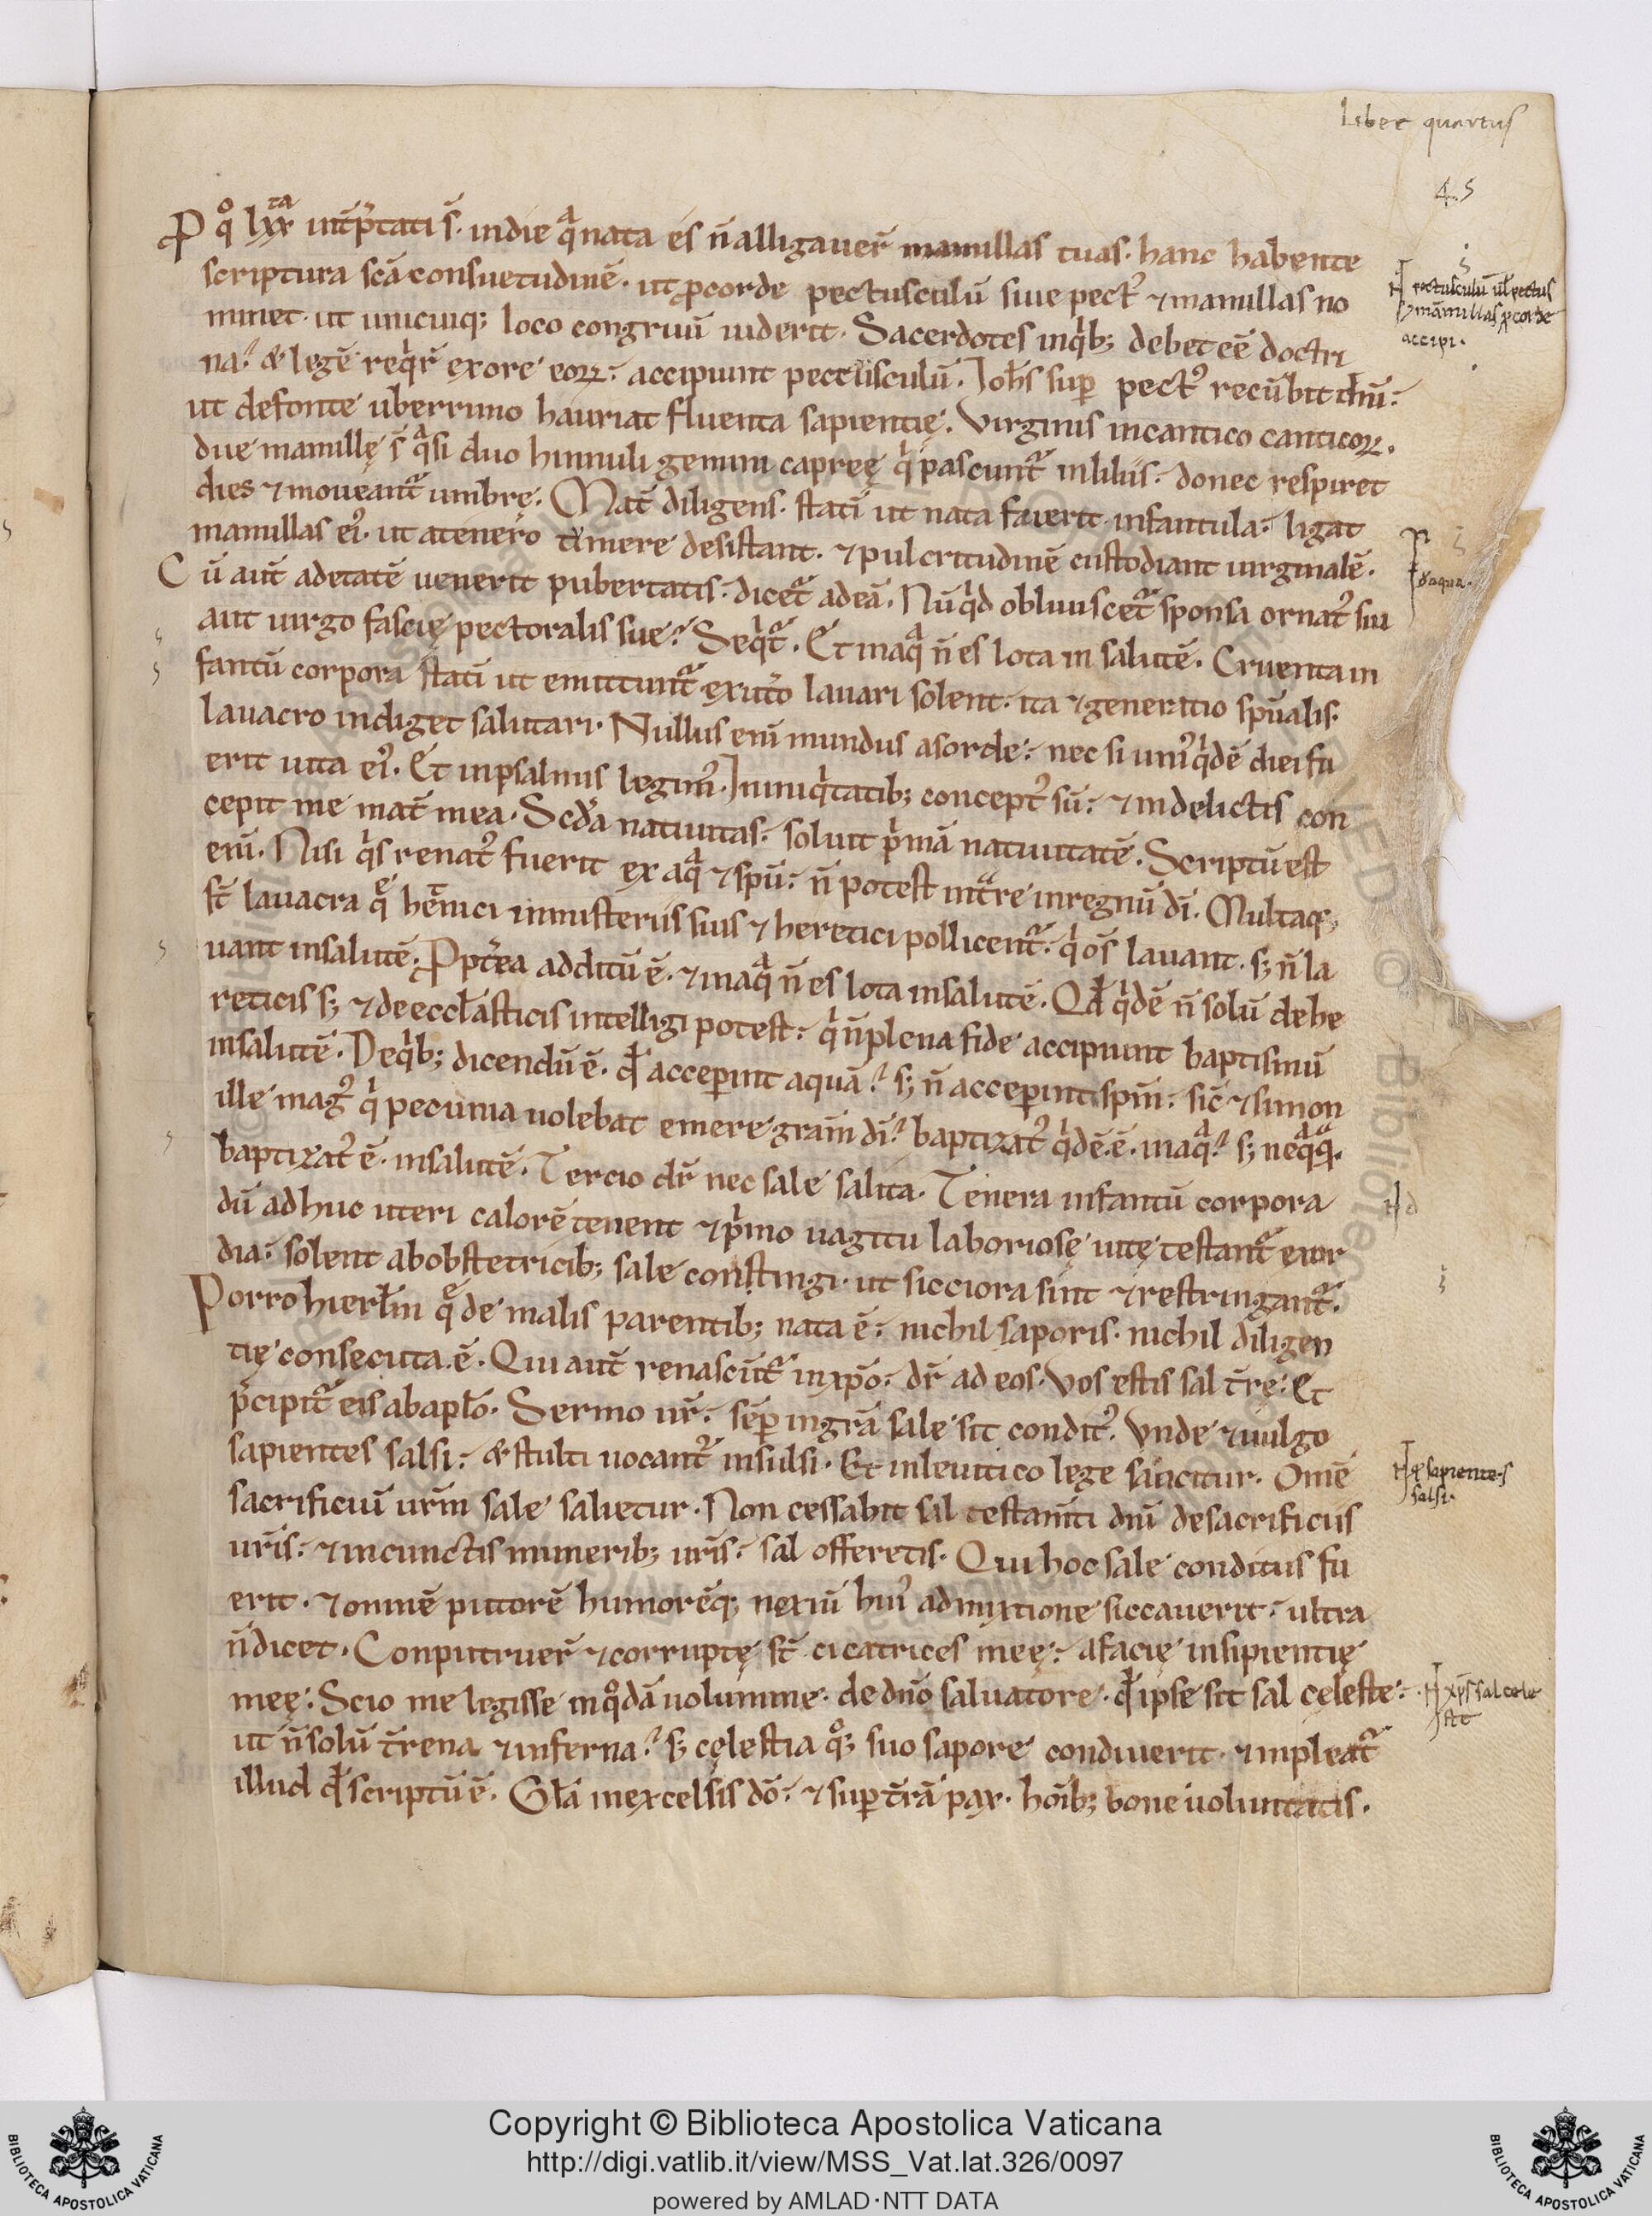 Liber quartus
45
P qͦ lxxᵗᵃ int̄p̄tati s̄. in die qᵃ nata es n̄ alligauer̄ mamillas tuas. hanc habente
scriptura sc̄a consuetudinē. ut ꝓ corde pectusculū siue pectꝰ ⁊ mamillas no
minet. ut unicuiq; loco congruū uiderit. Sacerdotes in qⁱb; debet eē doctri
na? & legē reqⁱr̄ ex ore eoꝝ: accipiunt pectusculū. Ioh̄s suꝑ pectꝰ recūbit ih̄u:
ut de fonte uberrimo hauriat fluenta sapientię. Virginis in cantico canticoꝝ.
due mamillę s̄ qᵃsi duo hinnuli gemini capreę qⁱ pascunt᷑ in liliis: donec respiret
dies ⁊ moueant᷑ umbrę. Mat̄ diligens. statī ut nata fuerit infantula: ligat
mamillas eiꝰ. ut a tenero timere desistant. ⁊ pulcritudinē custodiant uirginalē.
Cū aut̄ ad etatē uenerit pubertatis. dicet᷑ ad eā. Nūqⁱd obliuiscet᷑ sponsa ornatꝰ sui
aut uirgo fascię pectoralis sue? Seqⁱt᷑. Et in aqᵃ n̄ es lota in salutē. Cruenta in
fantū corpora statī ut emittunt᷑ ex utᵒ lauari solent. ita ⁊ generatio sp̄ualis.
lauacro indiget salutari. Nullus enī mundus a sorde: nec si uniꝰ qⁱdē diei fu
erit uita eiꝰ. Et in psalmis legimꝰ. In iniqⁱtatib; conceptꝰ sū: ⁊ in delictis con
cepit me mat̄ mea. Scd̄a natiuitas: soluit pⁱmā natiuitatē. Scriptū est
enī. Nisi qⁱs renatꝰ fuerit ex aqᵃ ⁊ sp̄u: n̄ potest intᵃre in regnū dī. Multaq;
st̄ lauacra qᵉ hēnici in misteriis suis ⁊ heretici pollicent᷑. qⁱ os̄ lauant. s; n̄ la
uant in salutē. Ꝓpt̄ea additū ē. ⁊ in aqᵃ n̄ es lota in salutē. Qđ qⁱdē n̄ solū de he
reticis s; ⁊ de eccl̄asticis intelligi potest: qⁱ n̄ plena fide accipiunt baptismū
in salutē. De qⁱb; dicendū ē. qđ acceꝑint aquā? s; n̄ acceꝑint sp̄m̄: sic̄ ⁊ simon
ille magꝰ qⁱ pecunia uolebat emere gram̄ dī? baptizatꝰ qⁱdē ē. in aqᵃ? s; neqᵃqᵃ.
baptizatꝰ ē. in salutē. Tercio dr̄ nec sale salita. Tenera infantū corpora
dū adhuc uteri calorē tenent ⁊ pⁱmo uagitu laboriosę uitę testant᷑ exor
dia: solent ab obstetricib; sale constingi. ut sicciora sint ⁊ restringant᷑.
Porro hierlm̄ qᵉ de malis parentib; nata ē: nichil saporis. nichil diligen
tię consecuta ē. Qui aut̄ renascunt᷑ in xp̄o: dr̄ ad eos. Vos estis sal t̄rę: Et
p̄cipit᷑ eis ab apl̄o. Sermo ur̄: sēꝑ in grā sale sit conditꝰ. Vnde ⁊ uulgo
sapientes salsi: & stulti uocant᷑ insulsi. Et in leuitico lege sancitur. Omē
sacrificiū urm̄ sale salietur. Non cessabit sal testam̄ti dn̄i de sacrificiis
ur̄is: ⁊ in cunctis munerib; ur̄is: sal offeretis. Qui hoc sale conditus fu
erit. ⁊ omnē putorē humorēq; noxiū huiꝰ admixtione siccauerit: ultra
n̄ dicet. Conputruer̄ ⁊ corruptę st̄ cicatrices meę: a facię insipientię
meę: Scio me legisse in qᵒdā uolumine. de dn̄o saluatore. qđ ipse sit sal cęleste:
ut n̄ solū t̄rena ⁊ inferna? s; cęlestia qᵒ; suo sapore condiuerit. ⁊ impleat᷑
illud qđ scriptū ē. Gl̄a in excelsis dō: ⁊ suꝑ t̄rā pax. hoīb; bone uoluntatis.
pectusculū ul̄ pectus
⁊ mamillas ꝓ corde
accipi.
aqua.
sapientes
salsi.
xp̄s sal cele
ste
Copyright © Biblioteca Apostolica Vaticana
http://digi.vatlib.it/view/MSS_Vat.lat.326/0097
powered by AMLAD·NTT DATA
BIBLIOTECA APOSTOLICA VATICANA
BIBLIOTECA APOSTOLICA VATICANA